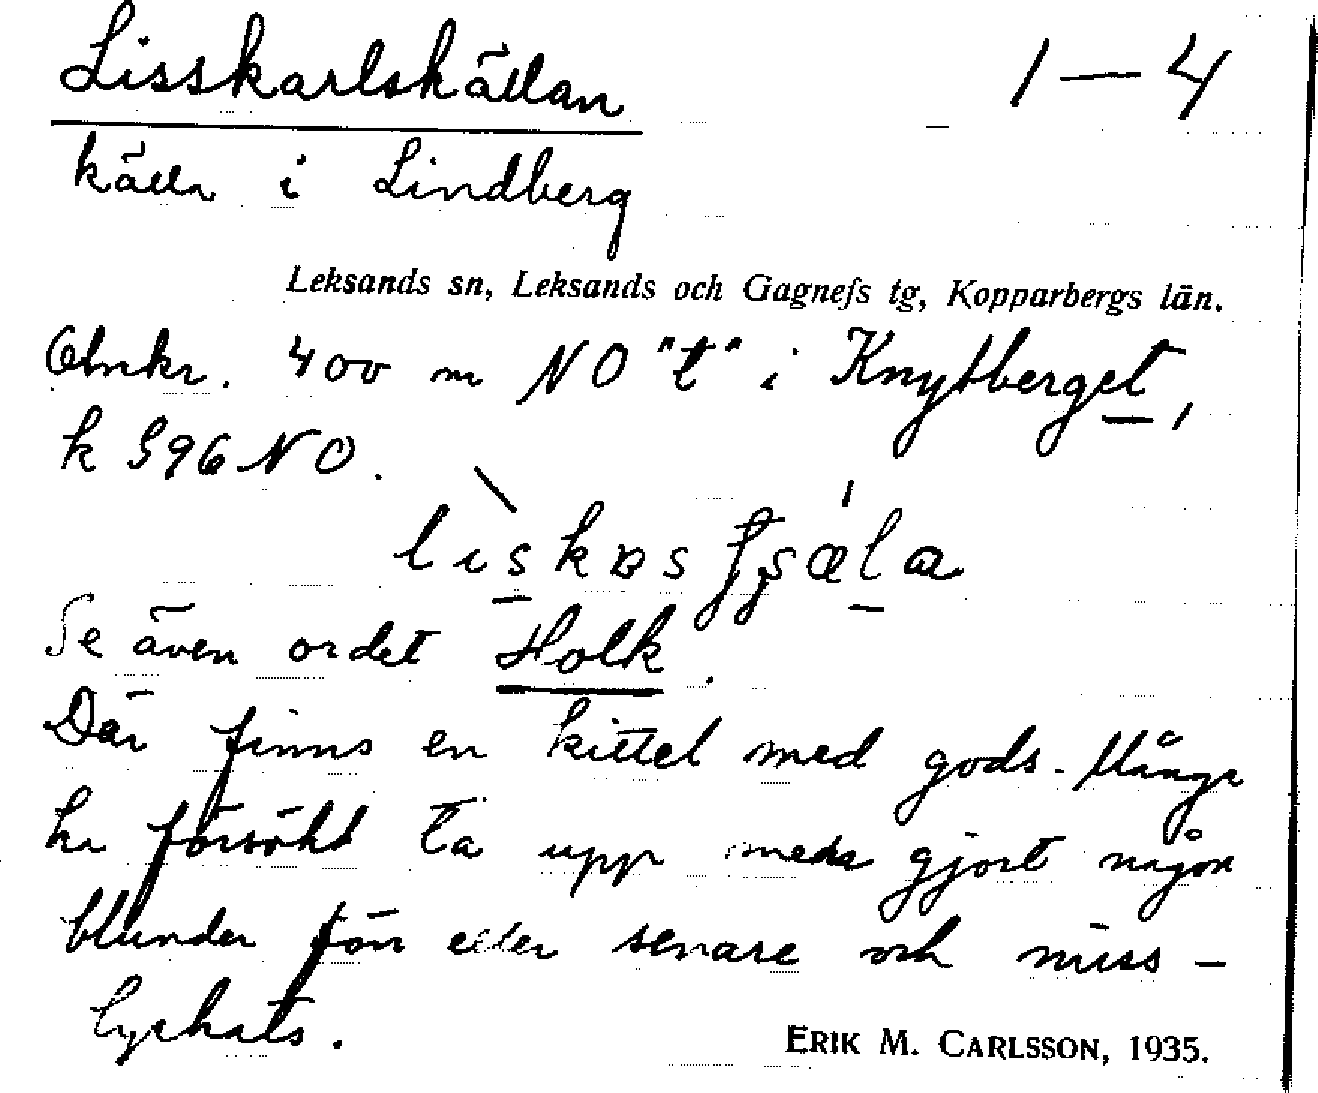 Lisskarlskällan 1–4
källa i Lindberg
Leksands sn, Leksands och Gagnefs tg, Kopparbergs län.
Omkr. 400 m NO "t" i Knytberget,
k 596 NO.
Se även ordet Holk.
Där finns en kittel med gods. Många
ha försökt ta upp men gjort någon
blunder förr eller senare och miss-
lyckats.
ERIK M. CARLSSON, 1935.